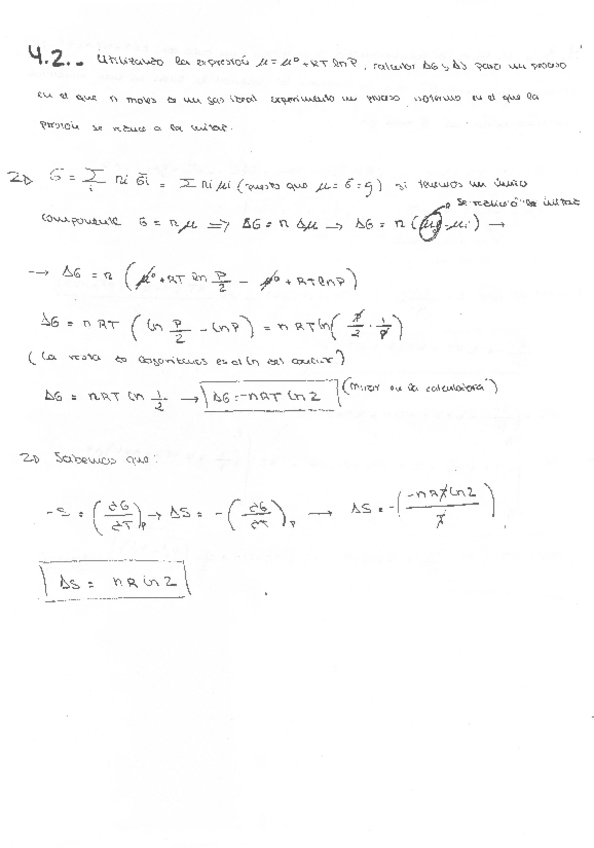 4.2.- Utilizando la expresión μ = μ⁰ + RT ln P, calcular ΔG y ΔS para un proceso
en el que n moles de un gas ideal experimenta un proceso isotermo en el que la
presión se reduce a la mitad.
G = Σ_i ni Ḡi = Σ ni μi (puesto que μ = Ḡ = g) si tenemos un único
se redució la mitad
componente G = n μ ⟹ ΔG = n Δμ → ΔG = n (μf - μi) →
→ ΔG = n (μ⁰ + RT ln P/2 - μ⁰ + RT ln P)
ΔG = n RT (ln P/2 - ln P) = n RT ln (P/2 · 1/P)
(La resta de logaritmos es el ln del cociente)
ΔG = nRT ln 1/2 → ΔG = -nRT ln 2 (mirar en la calculadora)
Sabemos que:
-S = (∂G/∂T)_P → ΔS = -(∂G/∂T)_P → ΔS = -(-nRT ln 2 / T)
ΔS = nR ln 2